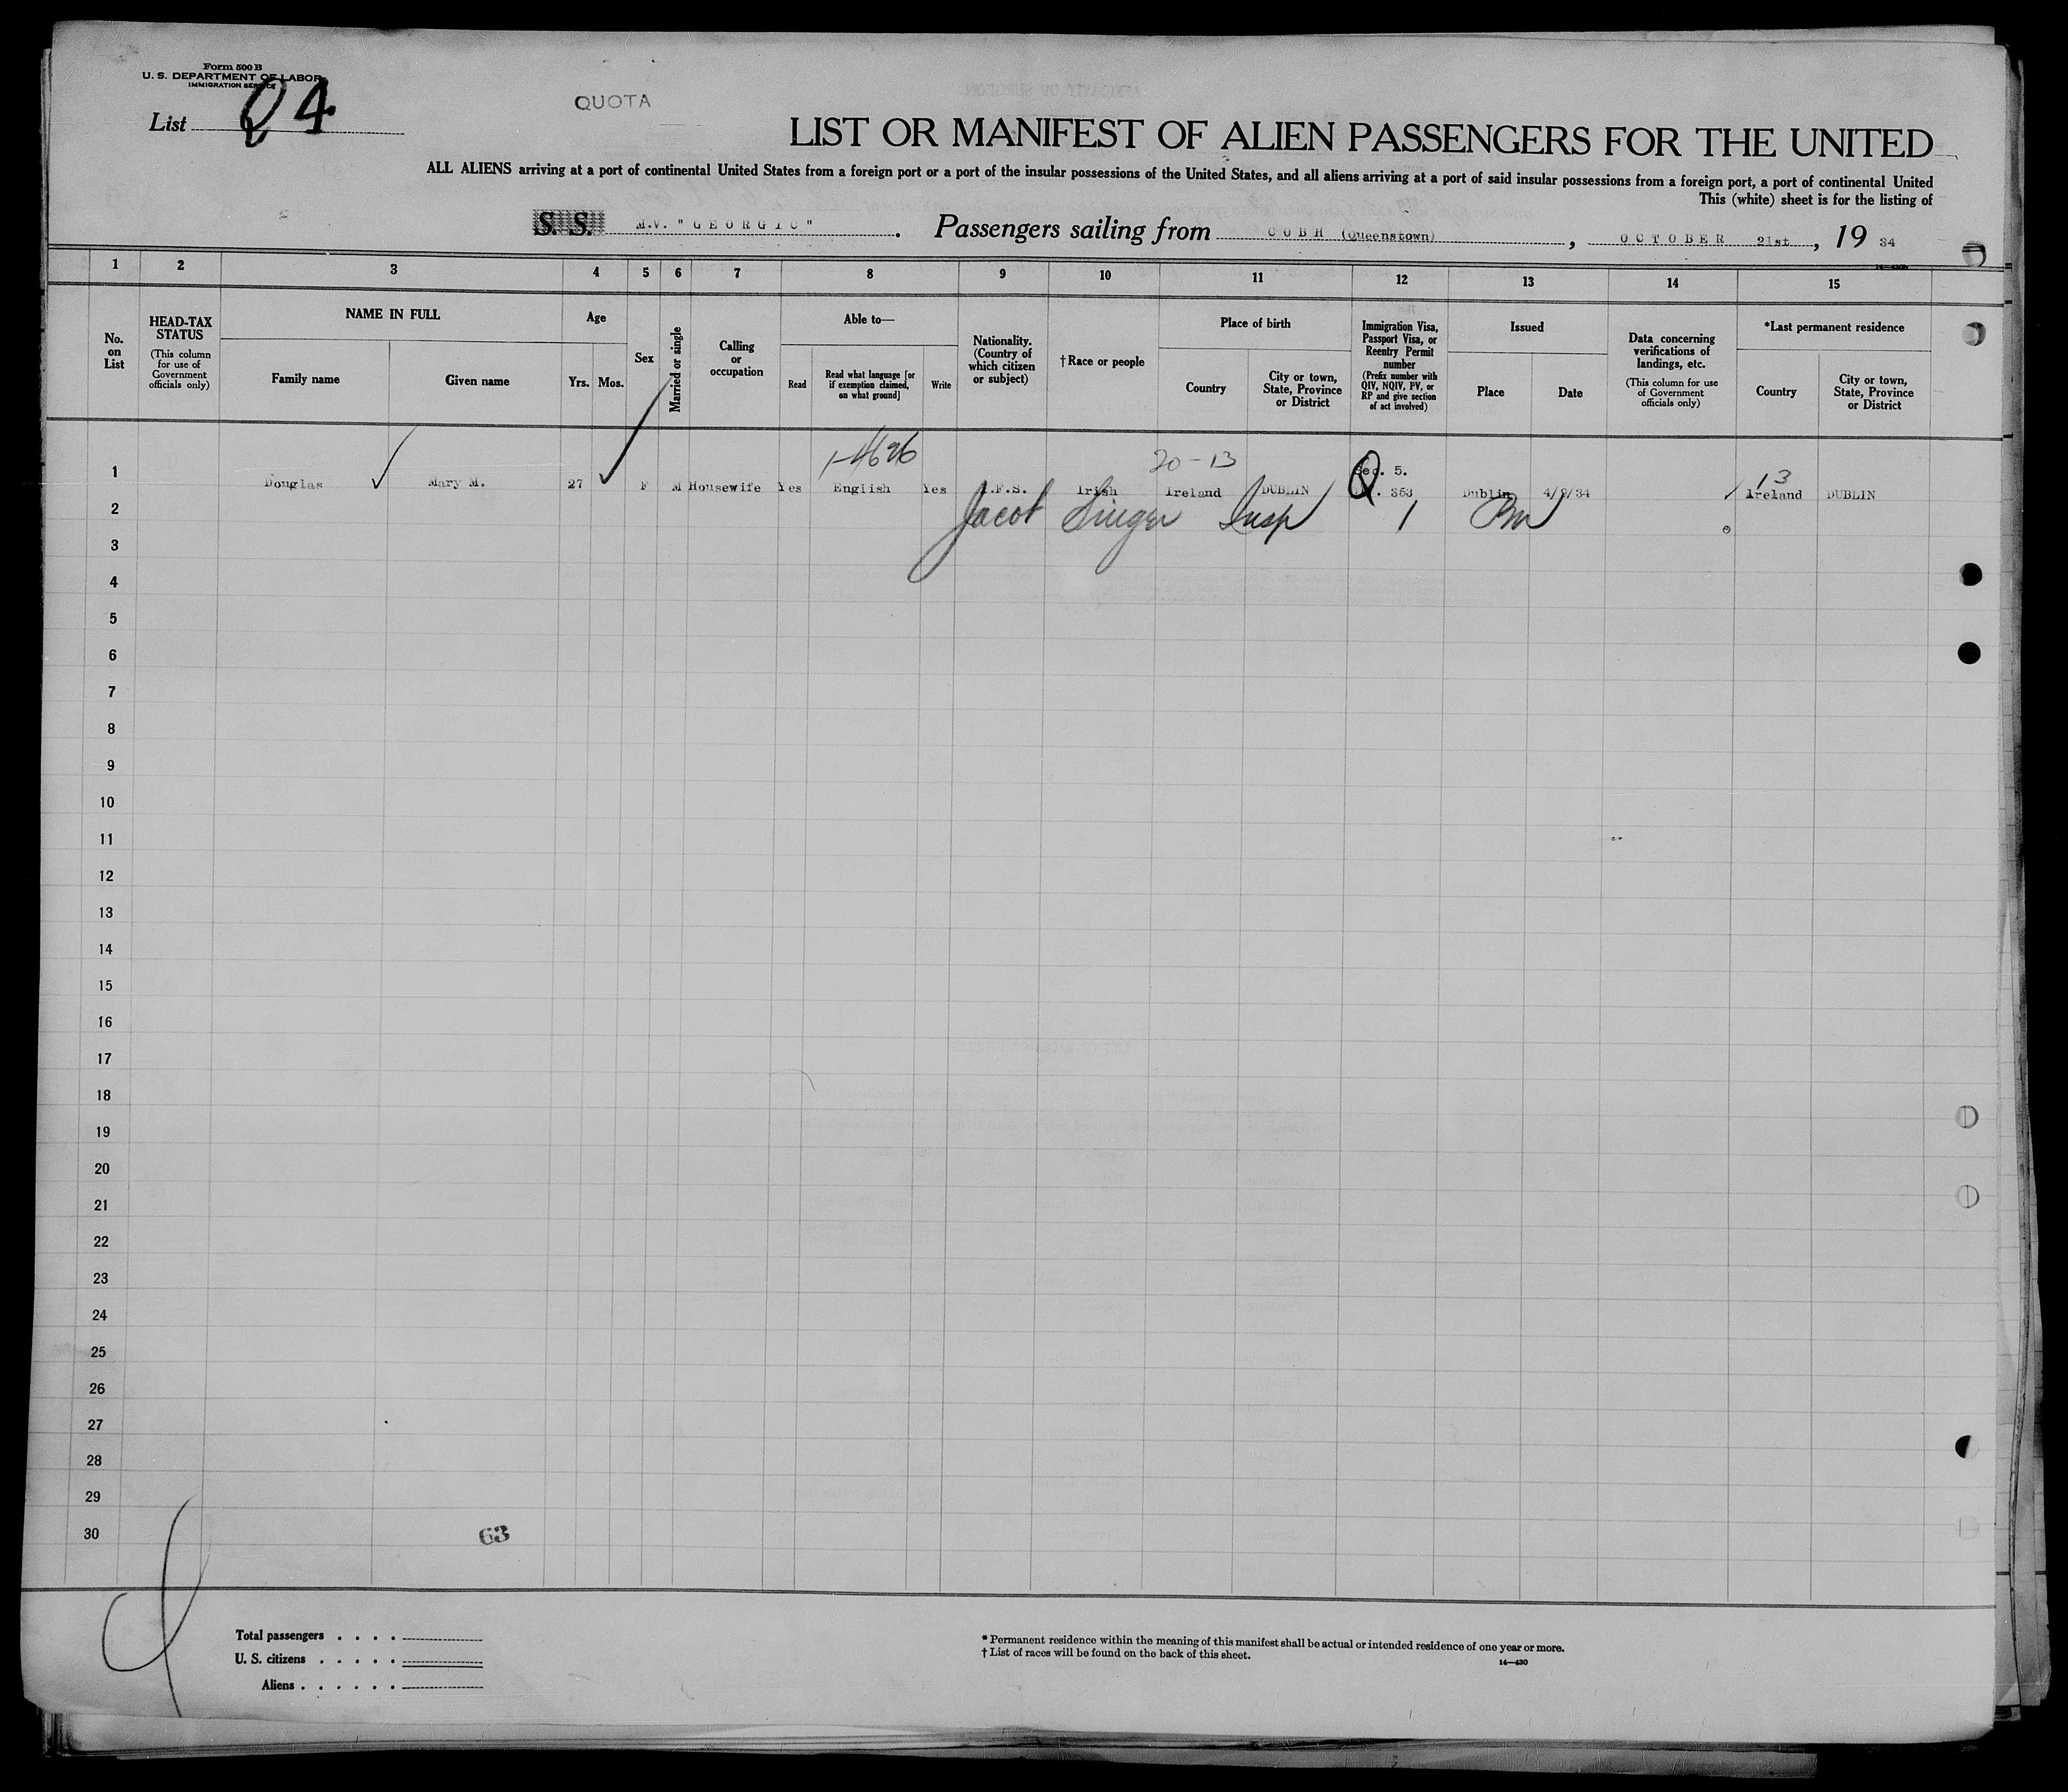 Form 500 B
U. S. DEPARTMENT OF LABOR
IMMIGRATION SERVICE
List 24
QUOTA
LIST OR MANIFEST OF ALIEN PASSENGERS FOR THE UNITED
ALL ALIENS arriving at a port of continental United States from a foreign port or a port of the insular possessions of the United States, and all aliens arriving at a port of said insular possessions from a foreign port, a port of continental United
This (white) sheet is for the listing of
S. S. M.V. "GEORGIC". Passengers sailing from COBH (Queenstown), OCTOBER 21st, 19 34
1 2 3 4 5 6 7 8 9 10 11 12 13 14 15
No. on List
HEAD-TAX STATUS
(This column for use of Government officials only)
NAME IN FULL
Family name
Given name
Age
Yrs. Mos.
Sex
Married or single
Calling or occupation
Able to—
Read
Read what language [or if exemption claimed, on what ground]
Write
Nationality. (Country of which citizen or subject)
†Race or people
Place of birth
Country
City or town, State, Province or District
Immigration Visa, Passport Visa, or Reentry Permit number
(Prefix number with QIV, NQIV, PV, or RP and give section of act involved)
Issued
Place
Date
Data concerning verifications of landings, etc.
(This column for use of Government officials only)
*Last permanent residence
Country
City or town, State, Province or District
1-4696 20-13 Sec. 5. 13
1 Douglas Mary M. 27 F M Housewife Yes English Yes I.F.S. Irish Ireland DUBLIN 353 Dublin 4/9/34 Ireland DUBLIN
2 Jacob Singer Insp 1
3
4
5
6
7
8
9
10
11
12
13
14
15
16
17
18
19
20
21
22
23
24
25
26
27
28
29
30
63
Total passengers
U. S. citizens
Aliens
* Permanent residence within the meaning of this manifest shall be actual or intended residence of one year or more.
† List of races will be found on the back of this sheet.
14—430